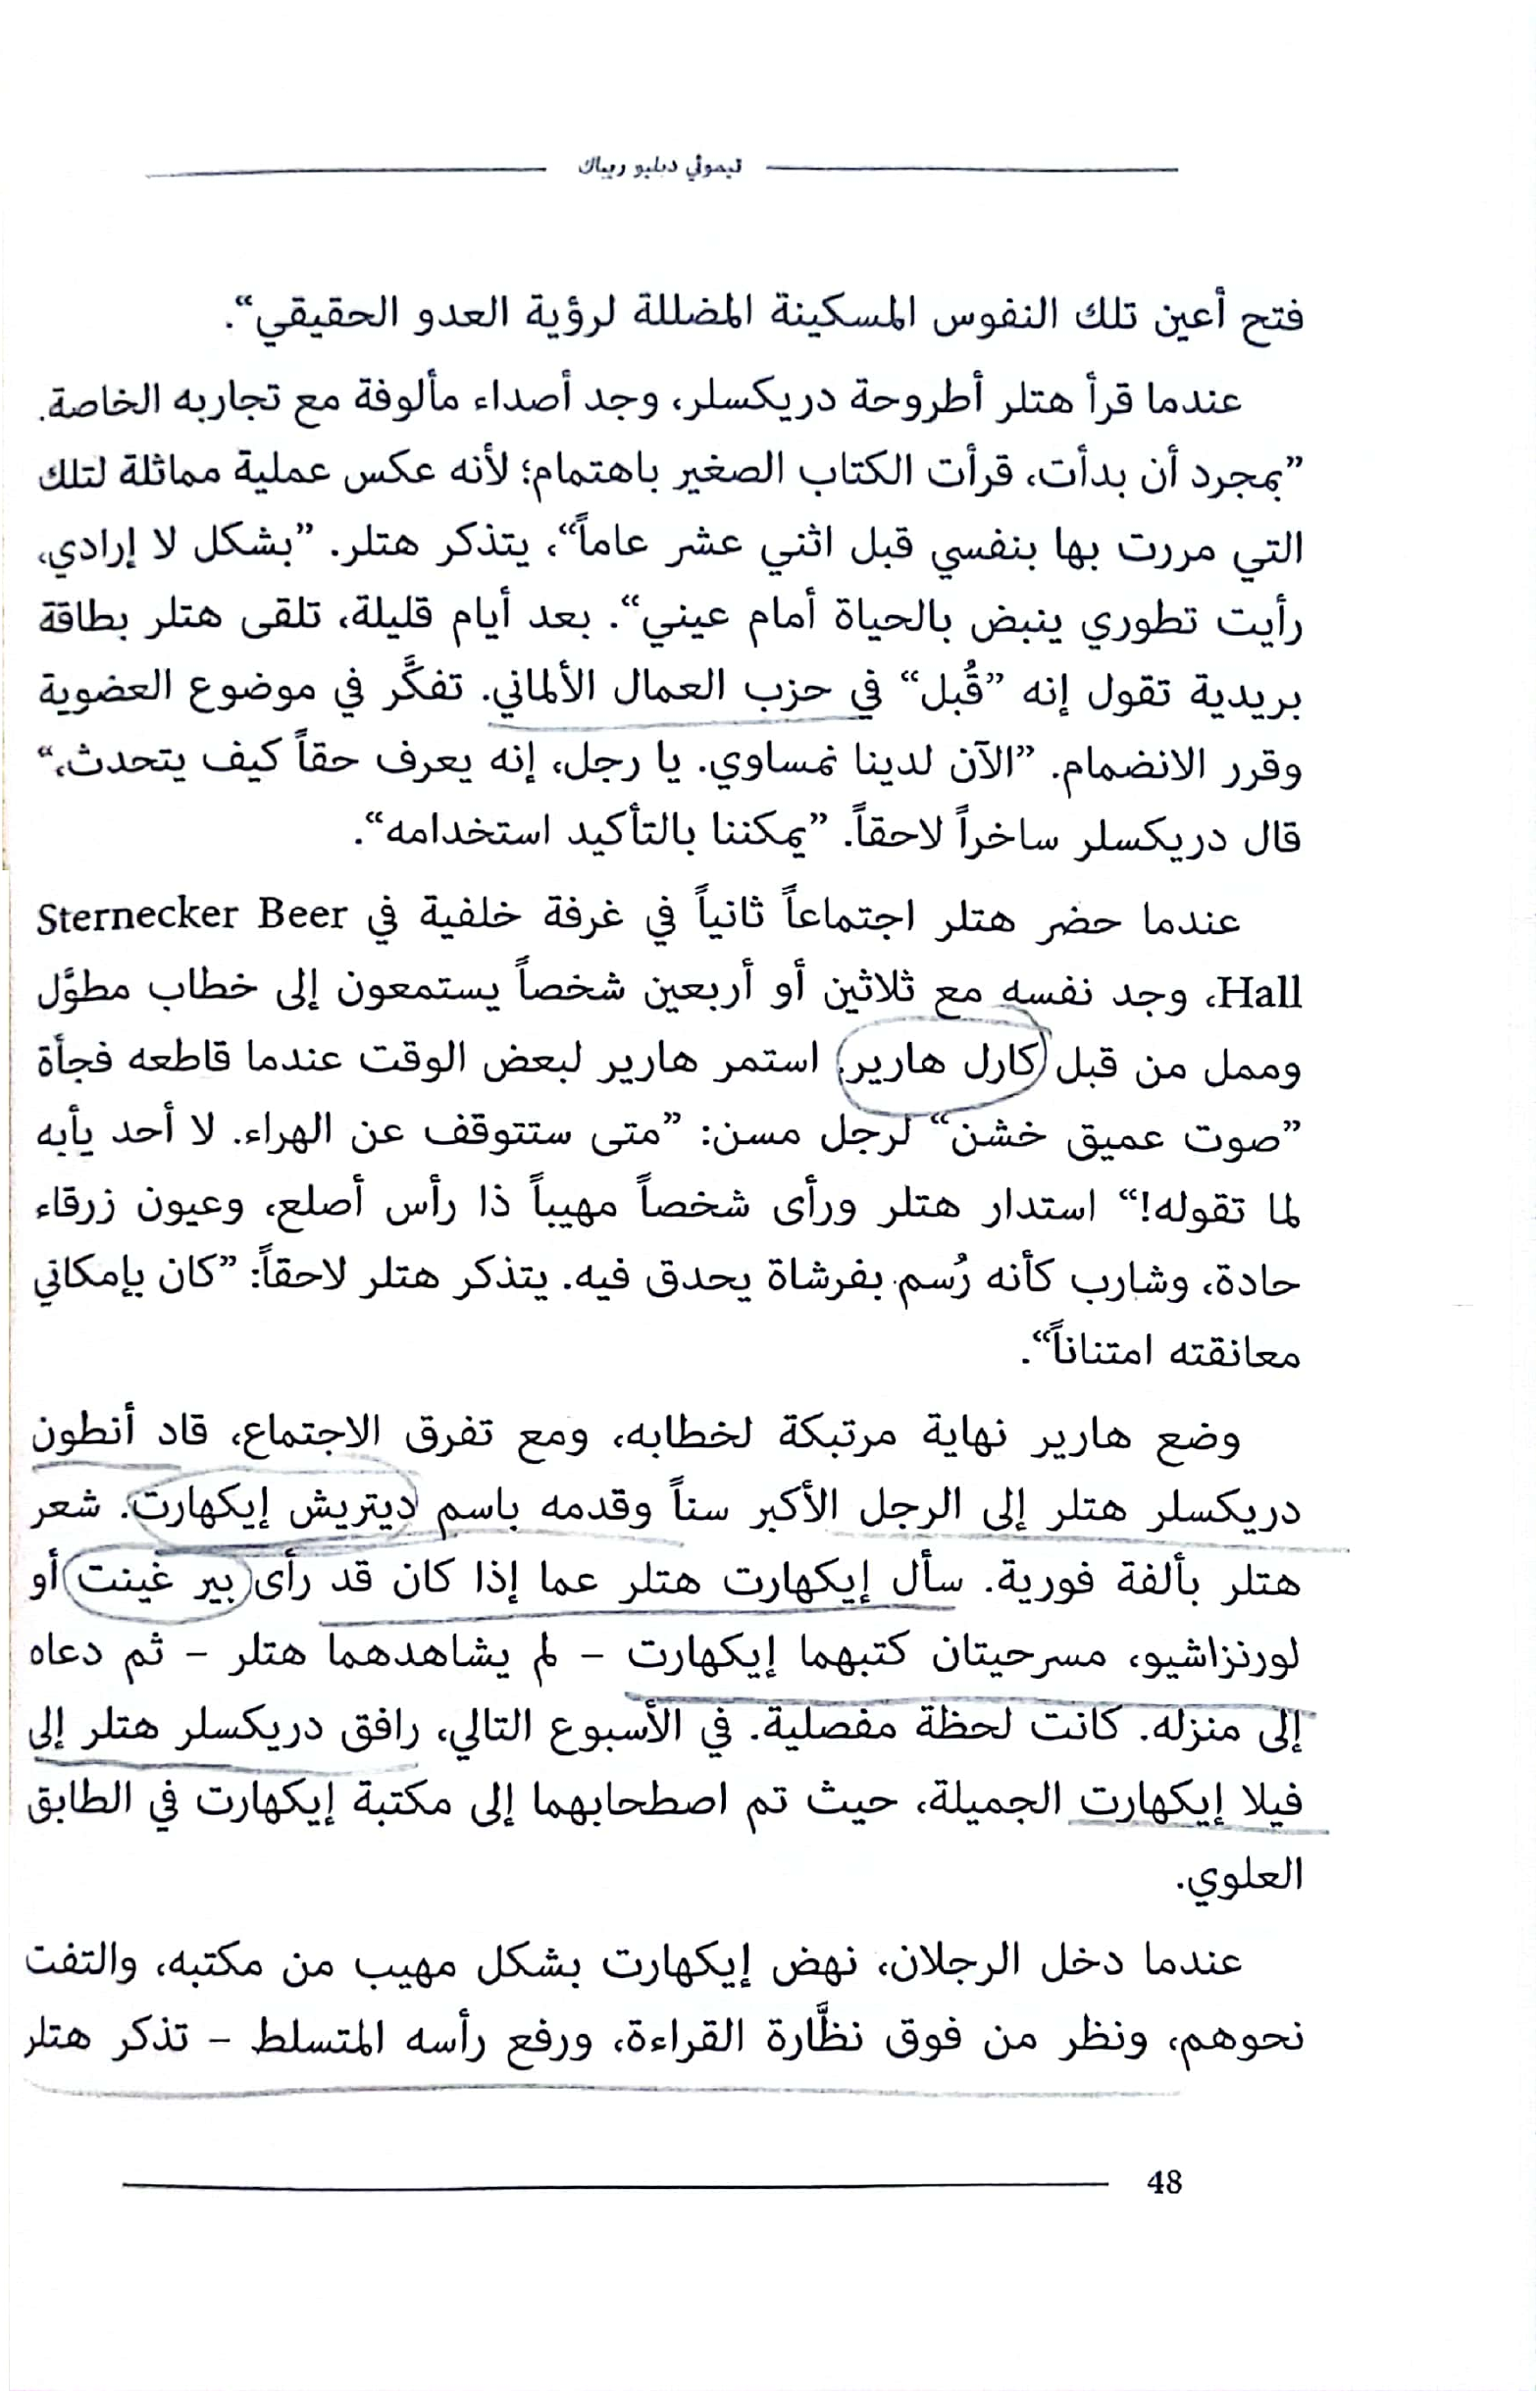 تيموثي دبليو ريباك
فتح أعين تلك النفوس المسكينة المضللة لرؤية العدو الحقيقي“.
عندما قرأ هتلر أطروحة دريكسلر، وجد أصداء مألوفة مع تجاربه الخاصة.
”بمجرد أن بدأت، قرأت الكتاب الصغير باهتمام؛ لأنه عكس عملية مماثلة لتلك
التي مررت بها بنفسي قبل اثني عشر عاماً“، يتذكر هتلر. ”بشكل لا إرادي،
رأيت تطوري ينبض بالحياة أمام عيني“. بعد أيام قليلة، تلقى هتلر بطاقة
بريدية تقول إنه ”قُبل“ في حزب العمال الألماني. تفكَّر في موضوع العضوية
وقرر الانضمام. ”الآن لدينا نمساوي. يا رجل، إنه يعرف حقاً كيف يتحدث،“
قال دريكسلر ساخراً لاحقاً. ”يمكننا بالتأكيد استخدامه“.
عندما حضر هتلر اجتماعاً ثانياً في غرفة خلفية في Sternecker Beer
Hall، وجد نفسه مع ثلاثين أو أربعين شخصاً يستمعون إلى خطاب مطوَّل
وممل من قبل كارل هارير. استمر هارير لبعض الوقت عندما قاطعه فجأة
”صوت عميق خشن“ لرجل مسن: ”متى ستتوقف عن الهراء. لا أحد يأبه
لما تقوله!“ استدار هتلر ورأى شخصاً مهيباً ذا رأس أصلع، وعيون زرقاء
حادة، وشارب كأنه رُسم بفرشاة يحدق فيه. يتذكر هتلر لاحقاً: ”كان بإمكاني
معانقته امتناناً“.
وضع هارير نهاية مرتبكة لخطابه، ومع تفرق الاجتماع، قاد أنطون
دريكسلر هتلر إلى الرجل الأكبر سناً وقدمه باسم ديتريش إيكهارت. شعر
هتلر بألفة فورية. سأل إيكهارت هتلر عما إذا كان قد رأى بير غينت أو
لورنزاشيو، مسرحيتان كتبهما إيكهارت – لم يشاهدهما هتلر – ثم دعاه
إلى منزله. كانت لحظة مفصلية. في الأسبوع التالي، رافق دريكسلر هتلر إلى
فيلا إيكهارت الجميلة، حيث تم اصطحابهما إلى مكتبة إيكهارت في الطابق
العلوي.
عندما دخل الرجلان، نهض إيكهارت بشكل مهيب من مكتبه، والتفت
نحوهم، ونظر من فوق نظَّارة القراءة، ورفع رأسه المتسلط – تذكر هتلر
48